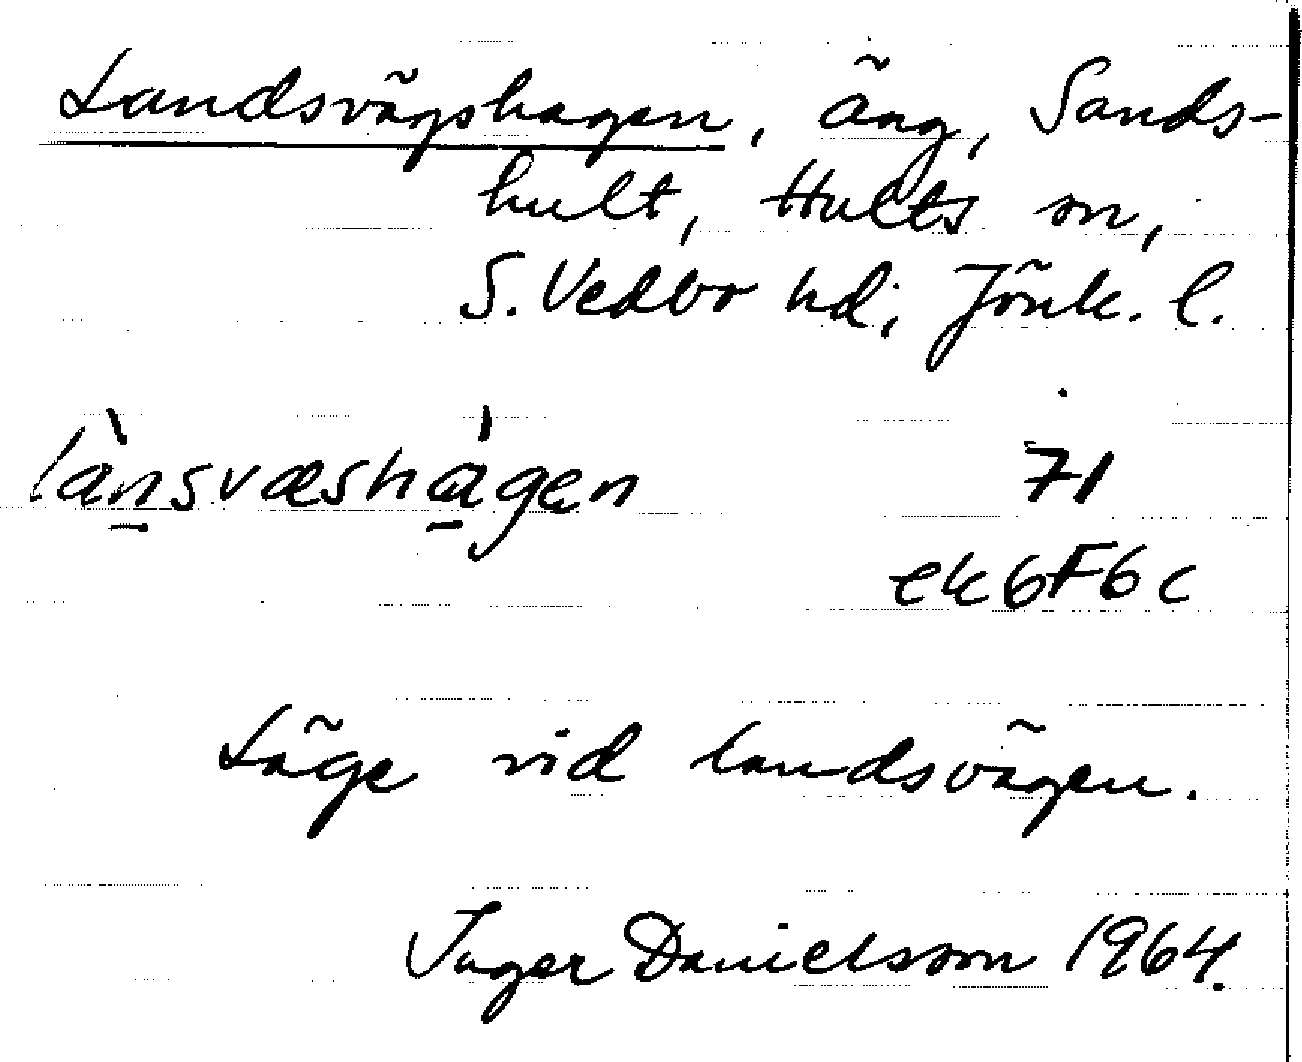 Landsvägshagen, äng, Sands-
hult, Hults sn,
S. Vedbo hd, Jönk. l.
lànsvæshágen 71
ek6F6c
Läge vid landsvägen.
Inger Danielsson 1964.